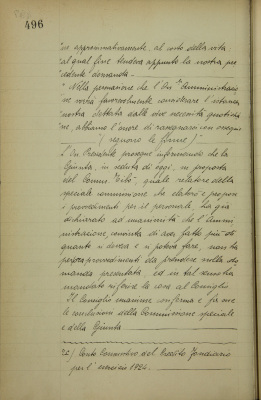 496
ne approssimativamente, al costo della vita
al qual fine tendeva appunto la nostra pre-
cedente domanda.-
" Nella persuasione che l'On. Amministrazio
ne vorrà favorevolmente considerare l'istanza
nostra dettata dalle vive necessità quotidia
ne, abbiamo l'onore di rassegnarci con ossequi
" (seguono le firme)
L'On. Presidente prosegue informando che la
Giunta, in seduta di oggi, su proposta
del Comm. quale relatore della
speciale commissione che elaborò e propose
i provvedimenti per il personale ha già
dichiarato ad unanimità che l'Ammi-
nistrazione, convinta di aver fatto più di
quanto si doveva e si poteva fare, non ha
provvedimenti da prendere sulla do
manda presentata, ed in tal senso ha
mandato riferire la cosa al Consiglio
Il Consiglio unanime conferma e fa sue
le conclusioni della Commissione speciale
e della Giunta
Conto Consuntivo del Credito Fondiario
per l'esercizio 1924.